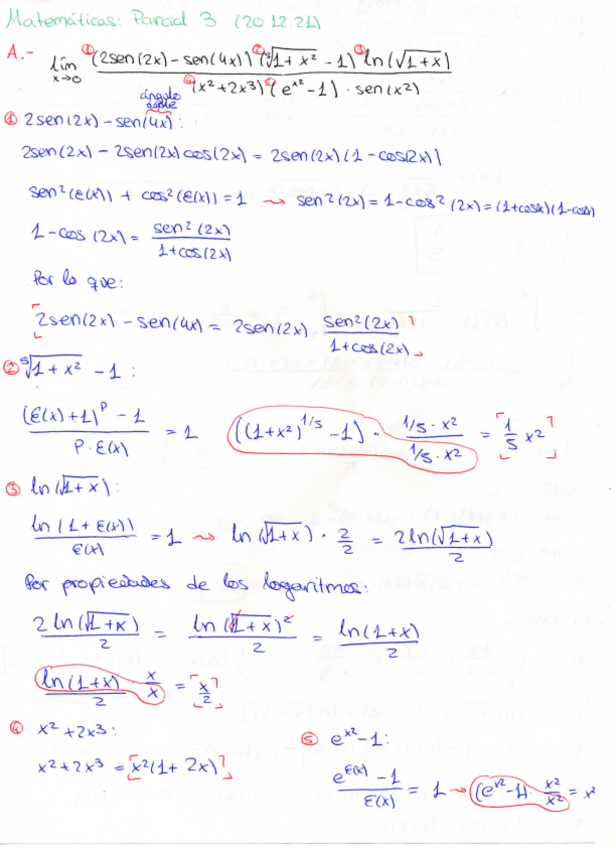 Matemáticas: Parcial 3 (20.12.21)
A.- lím x→0 ① (2sen(2x) - sen(4x)) ② (⁵√1+x² - 1) ③ ln(√1+x) / ④ (x²+2x³) ⑤ (e^x² - 1) · sen(x²)
ángulo doble
① 2sen(2x) - sen(4x):
2sen(2x) - 2sen(2x)cos(2x) = 2sen(2x)(1 - cos(2x))
sen²(ε(x)) + cos²(ε(x)) = 1 → sen²(2x) = 1 - cos²(2x) = (1+cosx)(1-cosx)
1 - cos(2x) = sen²(2x) / 1+cos(2x)
Por lo que:
2sen(2x) - sen(4x) = 2sen(2x) sen²(2x) / 1+cos(2x)
② ⁵√1+x² - 1:
(ε(x)+1)^p - 1 / p·ε(x) = 1 ((1+x²)^1/5 - 1) · 1/5·x² / 1/5·x² = 1/5 x²
③ ln(√1+x):
ln(1+ε(x)) / ε(x) = 1 → ln(√1+x) · 2/2 = 2ln(√1+x) / 2
Por propiedades de los logaritmos:
2ln(√1+x) / 2 = ln(√1+x)² / 2 = ln(1+x) / 2
ln(1+x) / 2 · x/x = x/2
④ x²+2x³:
x²+2x³ = x²(1+2x)
⑤ e^x² - 1:
e^ε(x) - 1 / ε(x) = 1 → (e^x² - 1) · x²/x² = x²